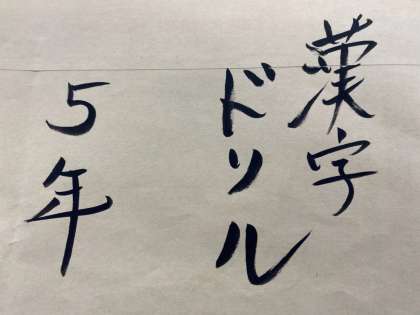 漢字
ドリル
5年